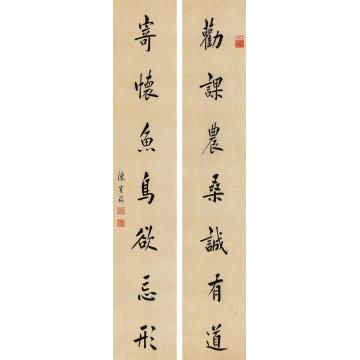 勸課農桑誠有道
寄懷魚鳥欲忘形